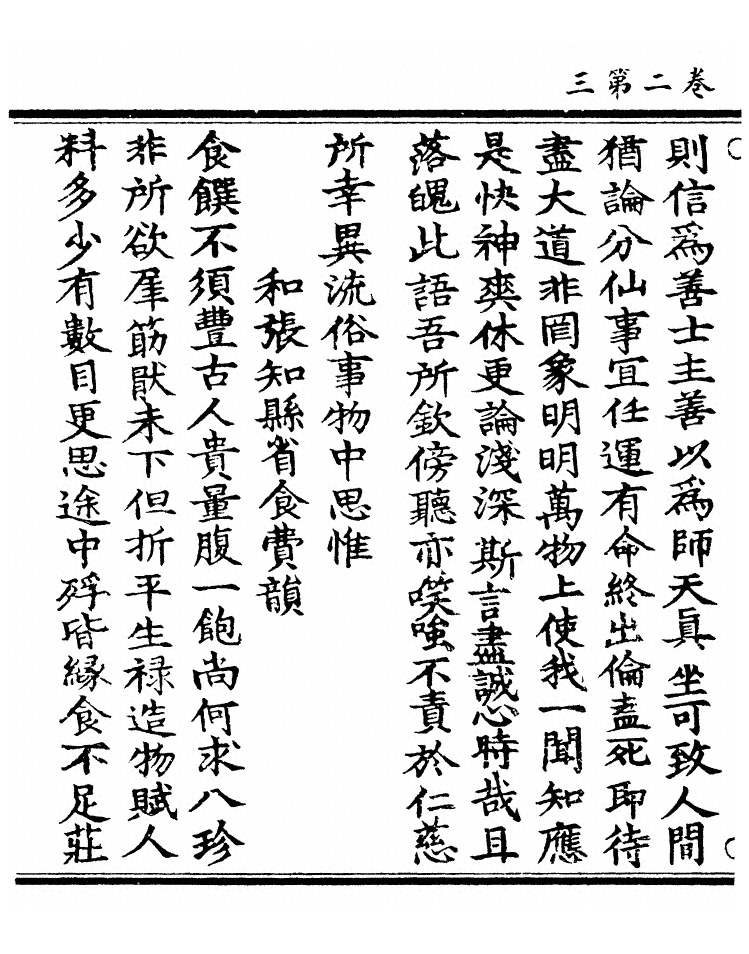 卷二第三
則信爲善士主善以爲師天真坐可致人間
猶論分仙事宜任運有命終出倫盍死即待
盡大道非罔象明明萬物上使我一聞知應
是快神爽休更論淺深斯言盡誠心時哉且
落魄此語吾所欽傍聽亦嘆嗤不責於仁慈
所幸異流俗事物中思惟
和張知縣省食費韻
食饌不須豐古人貴量腹一飽尚何求八珍
非所欲犀筯猒未下但折平生祿造物賦人
料多少有數目更思途中殍皆緣食不足莊